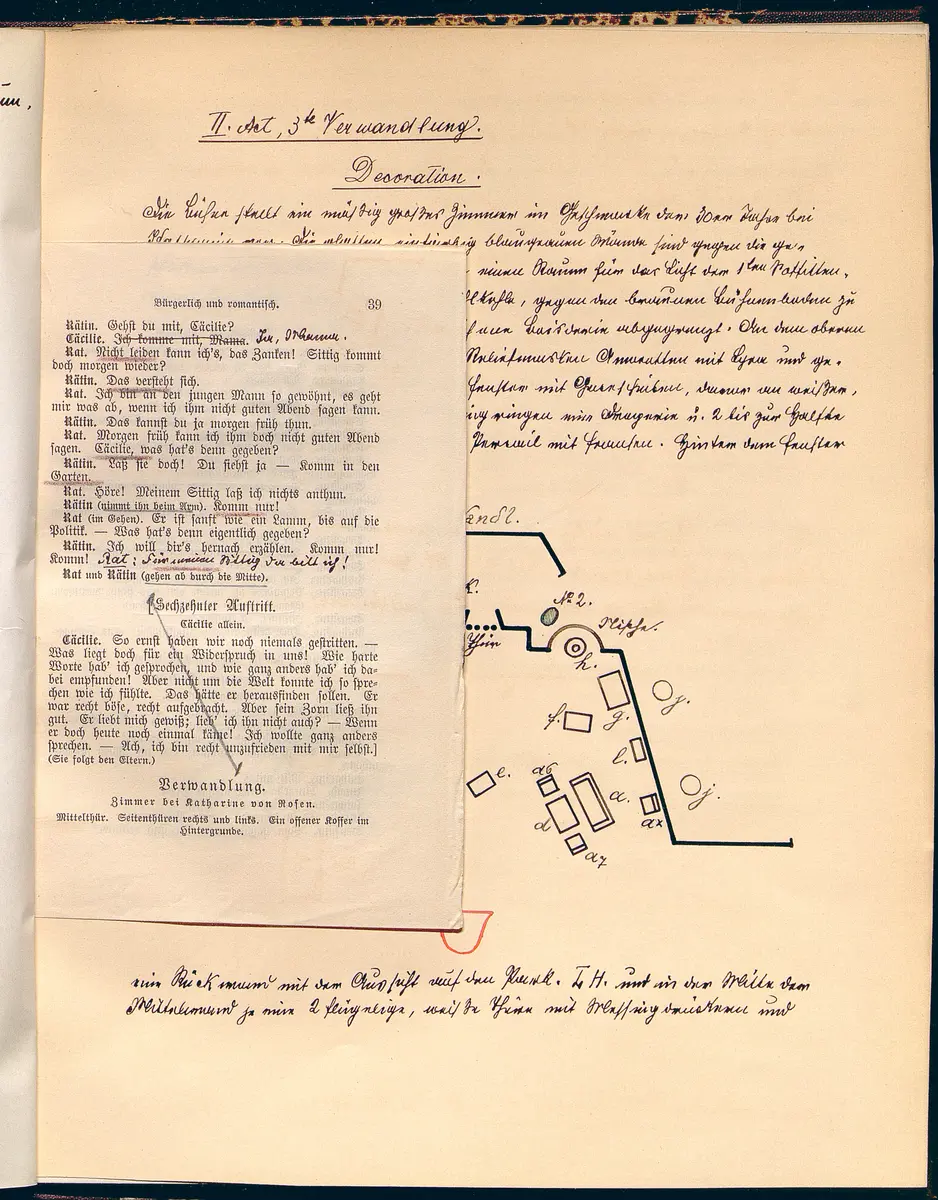 II. Act, 3te Verwandlung.
Decoration.
Die Bühne stellt ein mäßig großes Zimmer im Geschmacke der 30er Jahre bei
blaugrauen Wände sind gegen die ge-
einen Raum für das Licht der 1ten Soffitten,
gegen den braunen Bühnenboden zu
abgegrenzt. An dem oberen
mit Lyra und ge-
fenster mit daran an weißer,
eine Draperie u. 2 bis zur Hälfte
mit Fransen. Hinter dem Fenster
Bürgerlich und romantisch. 39
Rätin. Gehst du mit, Cäcilie?
Cäcilie. Ich komme mit, Mama. Ja,
Rat. Nicht leiden kann ich's, das Zanken! Sittig kommt
doch morgen wieder?
Rätin. Das versteht sich.
Rat. Ich bin an den jungen Mann so gewöhnt, es geht
mir was ab, wenn ich ihm nicht guten Abend sagen kann.
Rätin. Das kannst du ja morgen früh thun.
Rat. Morgen früh kann ich ihm doch nicht guten Abend
sagen. Cäcilie, was hat's denn gegeben?
Rätin. Laß sie doch! Du siehst ja — Komm in den
Garten.
Rat. Höre! Meinem Sittig laß ich nichts anthun.
Rätin (nimmt ihn beim Arm). Komm nur!
Rat (im Gehen). Er ist sanft wie ein Lamm, bis auf die
Politik. — Was hat's denn eigentlich gegeben?
Rätin. Ich will dir's hernach erzählen. Komm nur!
Komm! Rat: Für meinen Sittig da bitt ich!
Rat und Rätin (gehen ab durch die Mitte).
[Sechzehnter Auftritt.
Cäcilie allein.
Cäcilie. So ernst haben wir noch niemals gestritten. —
Was liegt doch für ein Widerspruch in uns! Wie harte
Worte hab' ich gesprochen, und wie ganz anders hab' ich da-
bei empfunden! Aber nicht um die Welt konnte ich so spre-
chen wie ich fühlte. Das hätte er herausfinden sollen. Er
war recht böse, recht aufgebracht. Aber sein Zorn ließ ihn
gut. Er liebt mich gewiß; lieb' ich ihn nicht auch? — Wenn
er doch heute noch einmal käme! Ich wollte ganz anders
sprechen. — Ach, ich bin recht unzufrieden mit mir selbst.]
(Sie folgt den Eltern.)
Verwandlung.
Zimmer bei Katharine von Rosen.
Mittelthür. Seitenthüren rechts und links. Ein offener Koffer im
Hintergrunde.
andl.
K.
No 2.
Thür
Nische.
h.
j.
f.
g.
l.
e.
a6
a.
j.
d
ax
a7
eine Rückwand mit der Aussicht auf den Park. I H. und in der Mitte der
Mittelwand je eine 2 flügelige, weiße Thüre mit Messingdrückern und